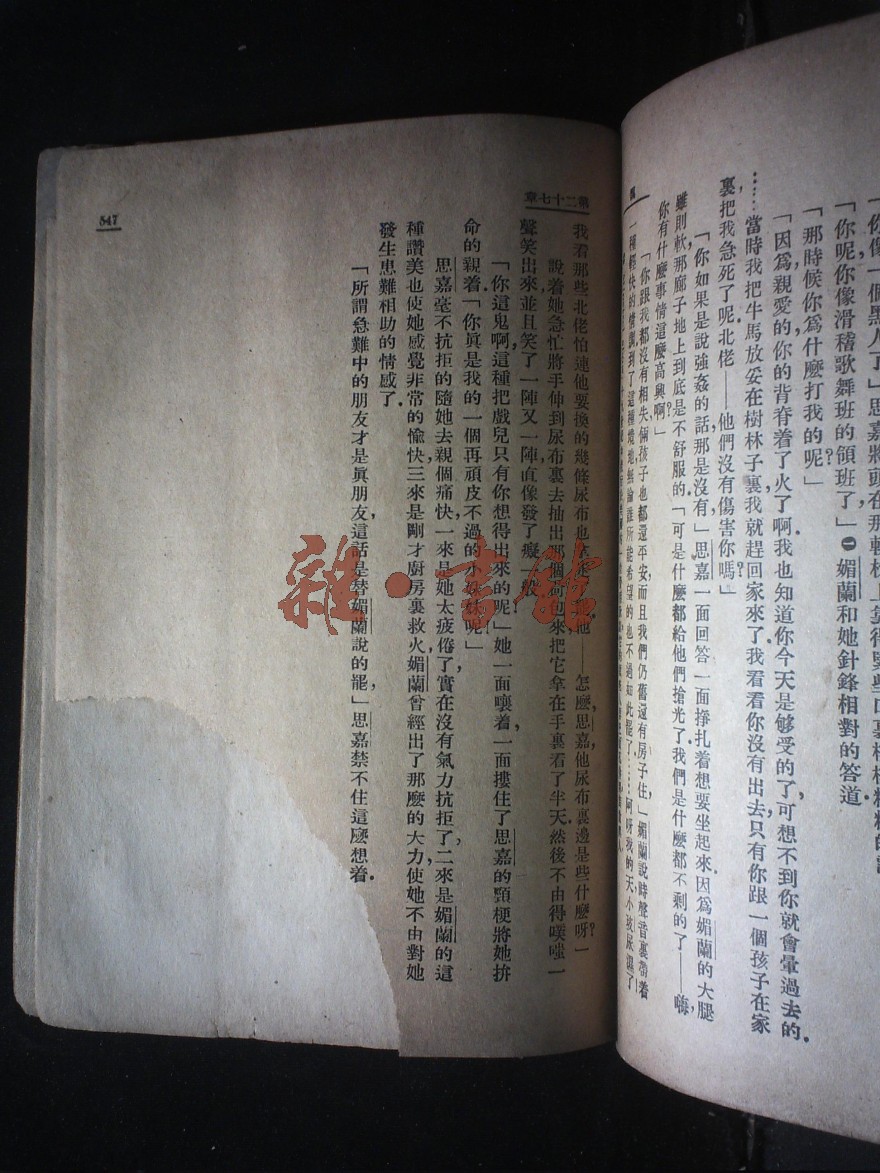 「你像一個黑人了」思嘉將頭在那
「你呢你像滑稽歌舞班的領班了」媚蘭和她針鋒相對的答道
「那時候你爲什麽打我的呢」?
「因爲親愛的你的背脊着了火了啊我也知道你今天是够受的了,可想不到你就會暈過去的.
……當時我把牛馬放妥在樹林子裏,我就趕回家來了我看看你沒有出去只有你跟一個孩子在家
裏,把我急死了呢北佬——他們沒有傷害你嗎?」
「你如果是說強姦的話,那是沒有」思嘉一面回答一面掙扎着想要坐起來,因爲媚蘭的大腿
雖則軟,那廊子地上到底是不舒服的「可是什麽都給他們搶光了.我們是什麽都不剩的了——嗨,
你有什麽事情這麽高興啊?」
「你跟我都沒有相失,倆孩子也都還平安,而且我們仍舊還有房子住」媚蘭說時聲音裏帶着
一種輕快的情調「到了這種境地,無論誰所能希望的也不過如此罷了……阿呀我的天,小玻尿濕了
第二十七章
我看那些北佬怕連他要換的幾條尿布也拿走 他——怎麽思嘉,他尿布裏邊是些什麽呀?」
說着她急忙將手伸到尿布裏去,抽出那個荷包來,把它拿在手裏看了半天,然後不由得噗嗤一
聲笑出來,並且笑了一陣又一陣,直像發了癡一般.
「你這鬼啊,這種把戲兒只有你想得出來的呢」她一面嚷着,一面摟住了思嘉的頸梗將她拚
命的親着「你眞是我的一個再頑皮不過的小妹妹呢」
思嘉毫不抗拒的隨她去親個痛快,一來是她太疲倦了,實在沒有氣力抗拒了,二來是媚蘭的這
種讚美也使她感覺非常的愉快,三來是剛才廚房裏救火媚蘭曾經出了那麽的大力,使她不由對她
發生患難相助的情感了.
「所謂急難中的朋友才是眞朋友,這話是替媚蘭說的罷」思嘉禁不住這麽想着.
547
雜·書館